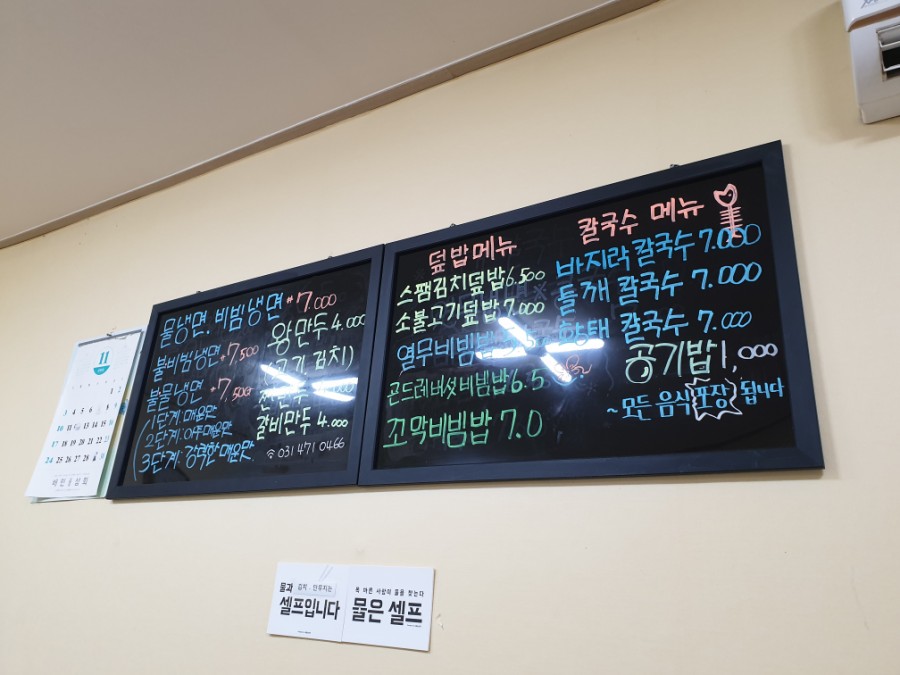 물냉면. 비빔냉면 7.000
불비빔냉면 7,500
불물냉면 7,500
1단계:매운맛
2단계:아주매운맛
3단계:강력한매운맛
왕만두 4.000
(고기, 김치)
갈비만두 4.000
☎031 471 0466
덮밥메뉴
스팸김치덮밥6.500
소불고기덮밥7,000
열무비빔밥
곤드레버섯비빔밥6.5
꼬막비빔밥 7.0
칼국수 메뉴
바지락칼국수 7.000
들깨 칼국수 7,000
황태 칼국수 7.000
공기밥 1,000
~모든 음식 포장 됩니다
11
물과
셀프입니다
목 마른 사람이 물을 찾는다
물은 셀프